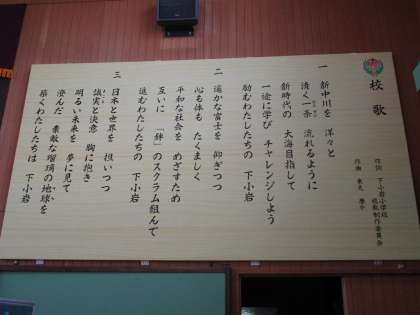 校歌
作詞 下小岩小学校
校歌制作委員会
作曲
一 新中川を 洋々と
清く一条 流れるように
新時代の 大海目指して
一途に学び チャレンジしよう
励むわたしたちの 下小岩
二 遥かな富士を 仰ぎつつ
心も体も たくましく
平和な社会を めざすため
互いに 「絆」のスクラム組んで
進むわたしたちの 下小岩
三 日本と世界を 担いつつ
誠実と決意 胸に抱き
明るい未来を 夢に見て
澄んだ 素敵な瑠璃の地球を
築くわたしたちは 下小岩